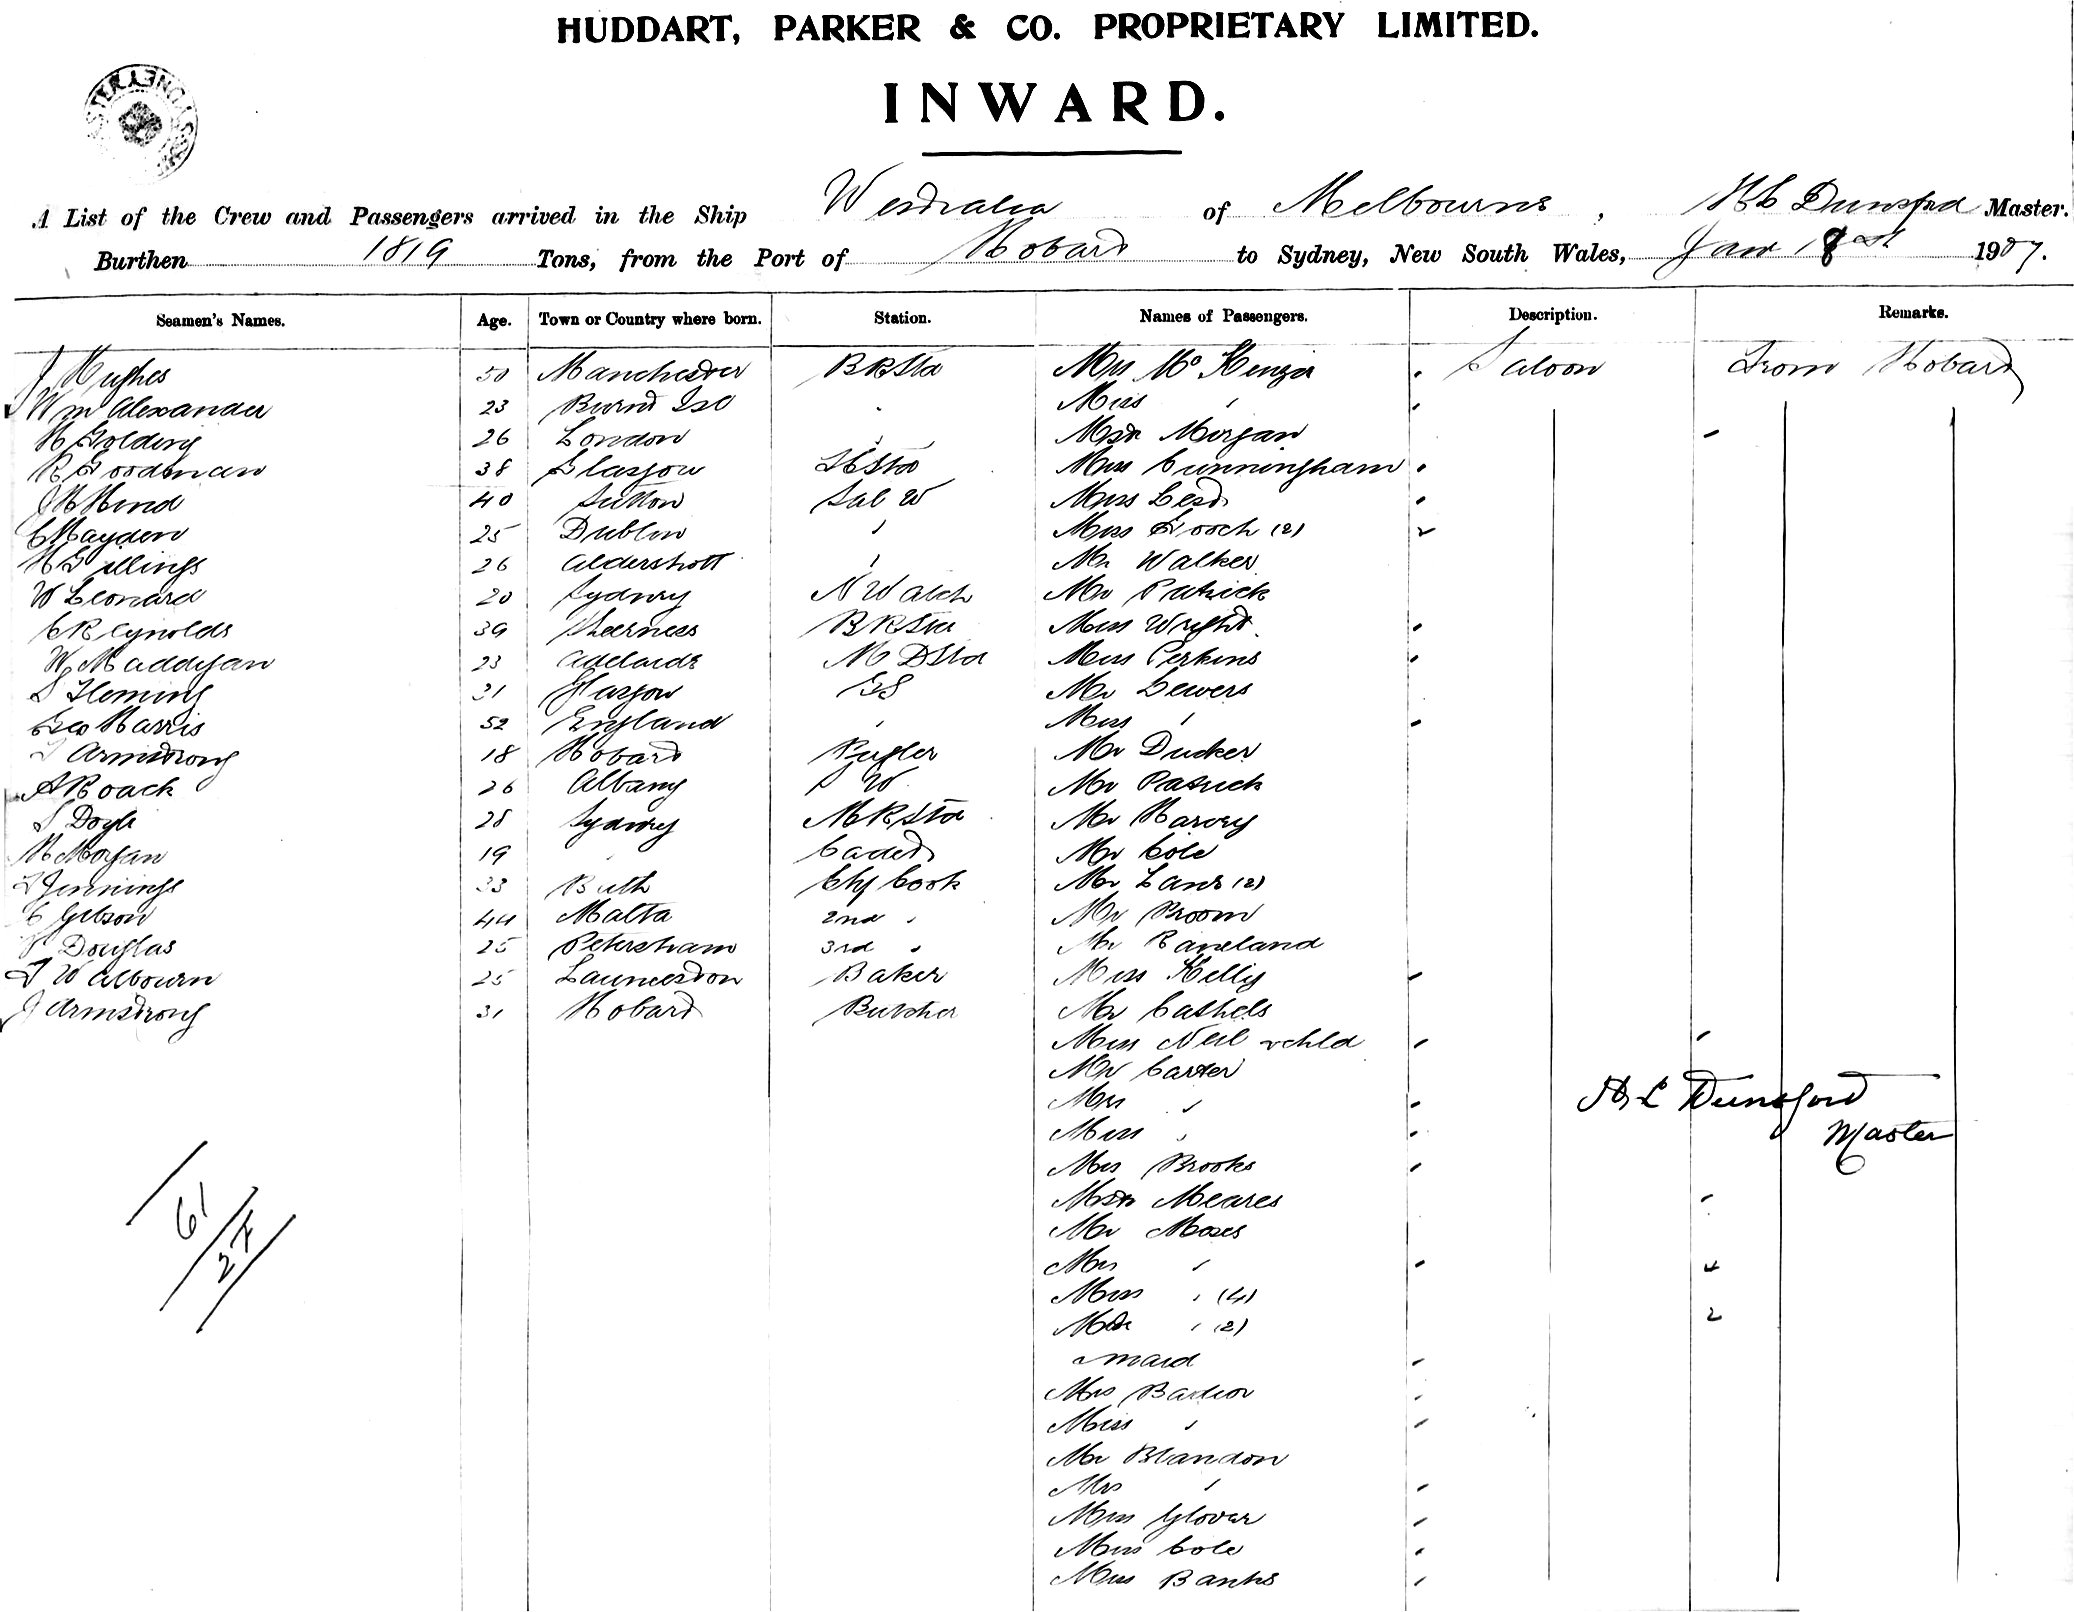 HUDDART, PARKER & CO. PROPRIETARY LIMITED.
INWARD.
A List of the Crew and Passengers arrived in the Ship Westralia of Melbourne, H L Dunsford Master.
Burthen 1819 Tons, from the Port of Hobart to Sydney, New South Wales, Jan 1907.
Seamen's Names. Age. Town or Country where born. Station. Names of Passengers. Description. Remarks.
J Hughes 50 Manchester BRStd Mrs McKenzie Saloon From Hobart
Wm Alexander 23 Burnt Isd Miss "
H Golding 26 London " Morgan
R Goodman 38 Glasgow Miss Cunningham
J H Hind 40 Sutton Sal W Miss
C Hayden 25 Dublin " Miss Gooch (2) 2
H Gillings 26 Aldershott " Mr Walker
W Leonard 20 Sydney N Watch Mr Patrick
C Reynolds 39 Sheerness BRStd Miss Wright
W Maddigan 23 Adelaide M D Std Miss Perkins
S Fleming 31 Glasgow GS Mr Lewers
Geo Harris 52 England " Miss "
T Armstrong 18 Hobart Bugler Mr Ducker
A Roach 26 Albany S W Mr Patrick
S Doyle 28 Sydney M R Std Mr Harvey
H Morgan 19 " Cadet Mr Cole
T Jennings 33 Bath Chf Cook Mr Lane (2)
C Gibson 44 Malta 2nd " Mr Broom
P Douglas 25 Petersham 3rd " Mr Raneland
T Walbourn 25 Launceston Baker Miss Kelly
J Armstrong 31 Hobart Butcher Mr Cathels
Miss Neil & chld
Mr Carter
Mrs "
Miss "
H L Dunsford
Master
Mrs Brooks
Meares
Mr Moses
Mrs " 4
Miss " (4)
" (2) 2
maid
Mrs Barlow
Miss "
Mr Blandon
Mrs "
Miss Glover
Miss Cole
Miss Banks
61
27